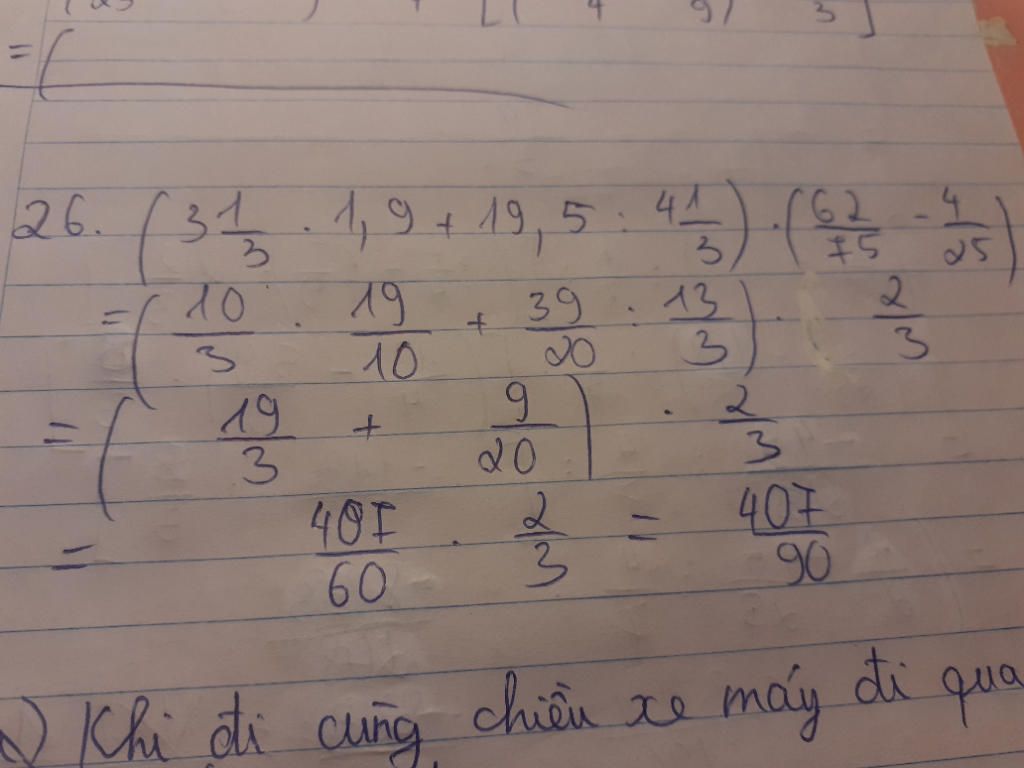 = (
26. (3 1/3 . 1,9 + 19,5 : 4 1/3) . (62/75 - 4/25)
= (10/3 . 19/10 + 39/20 : 13/3) . 2/3
= (19/3 + 9/20) . 2/3
= 407/60 . 2/3 = 407/90
) Khi đi cùng chiều xe máy đi qua